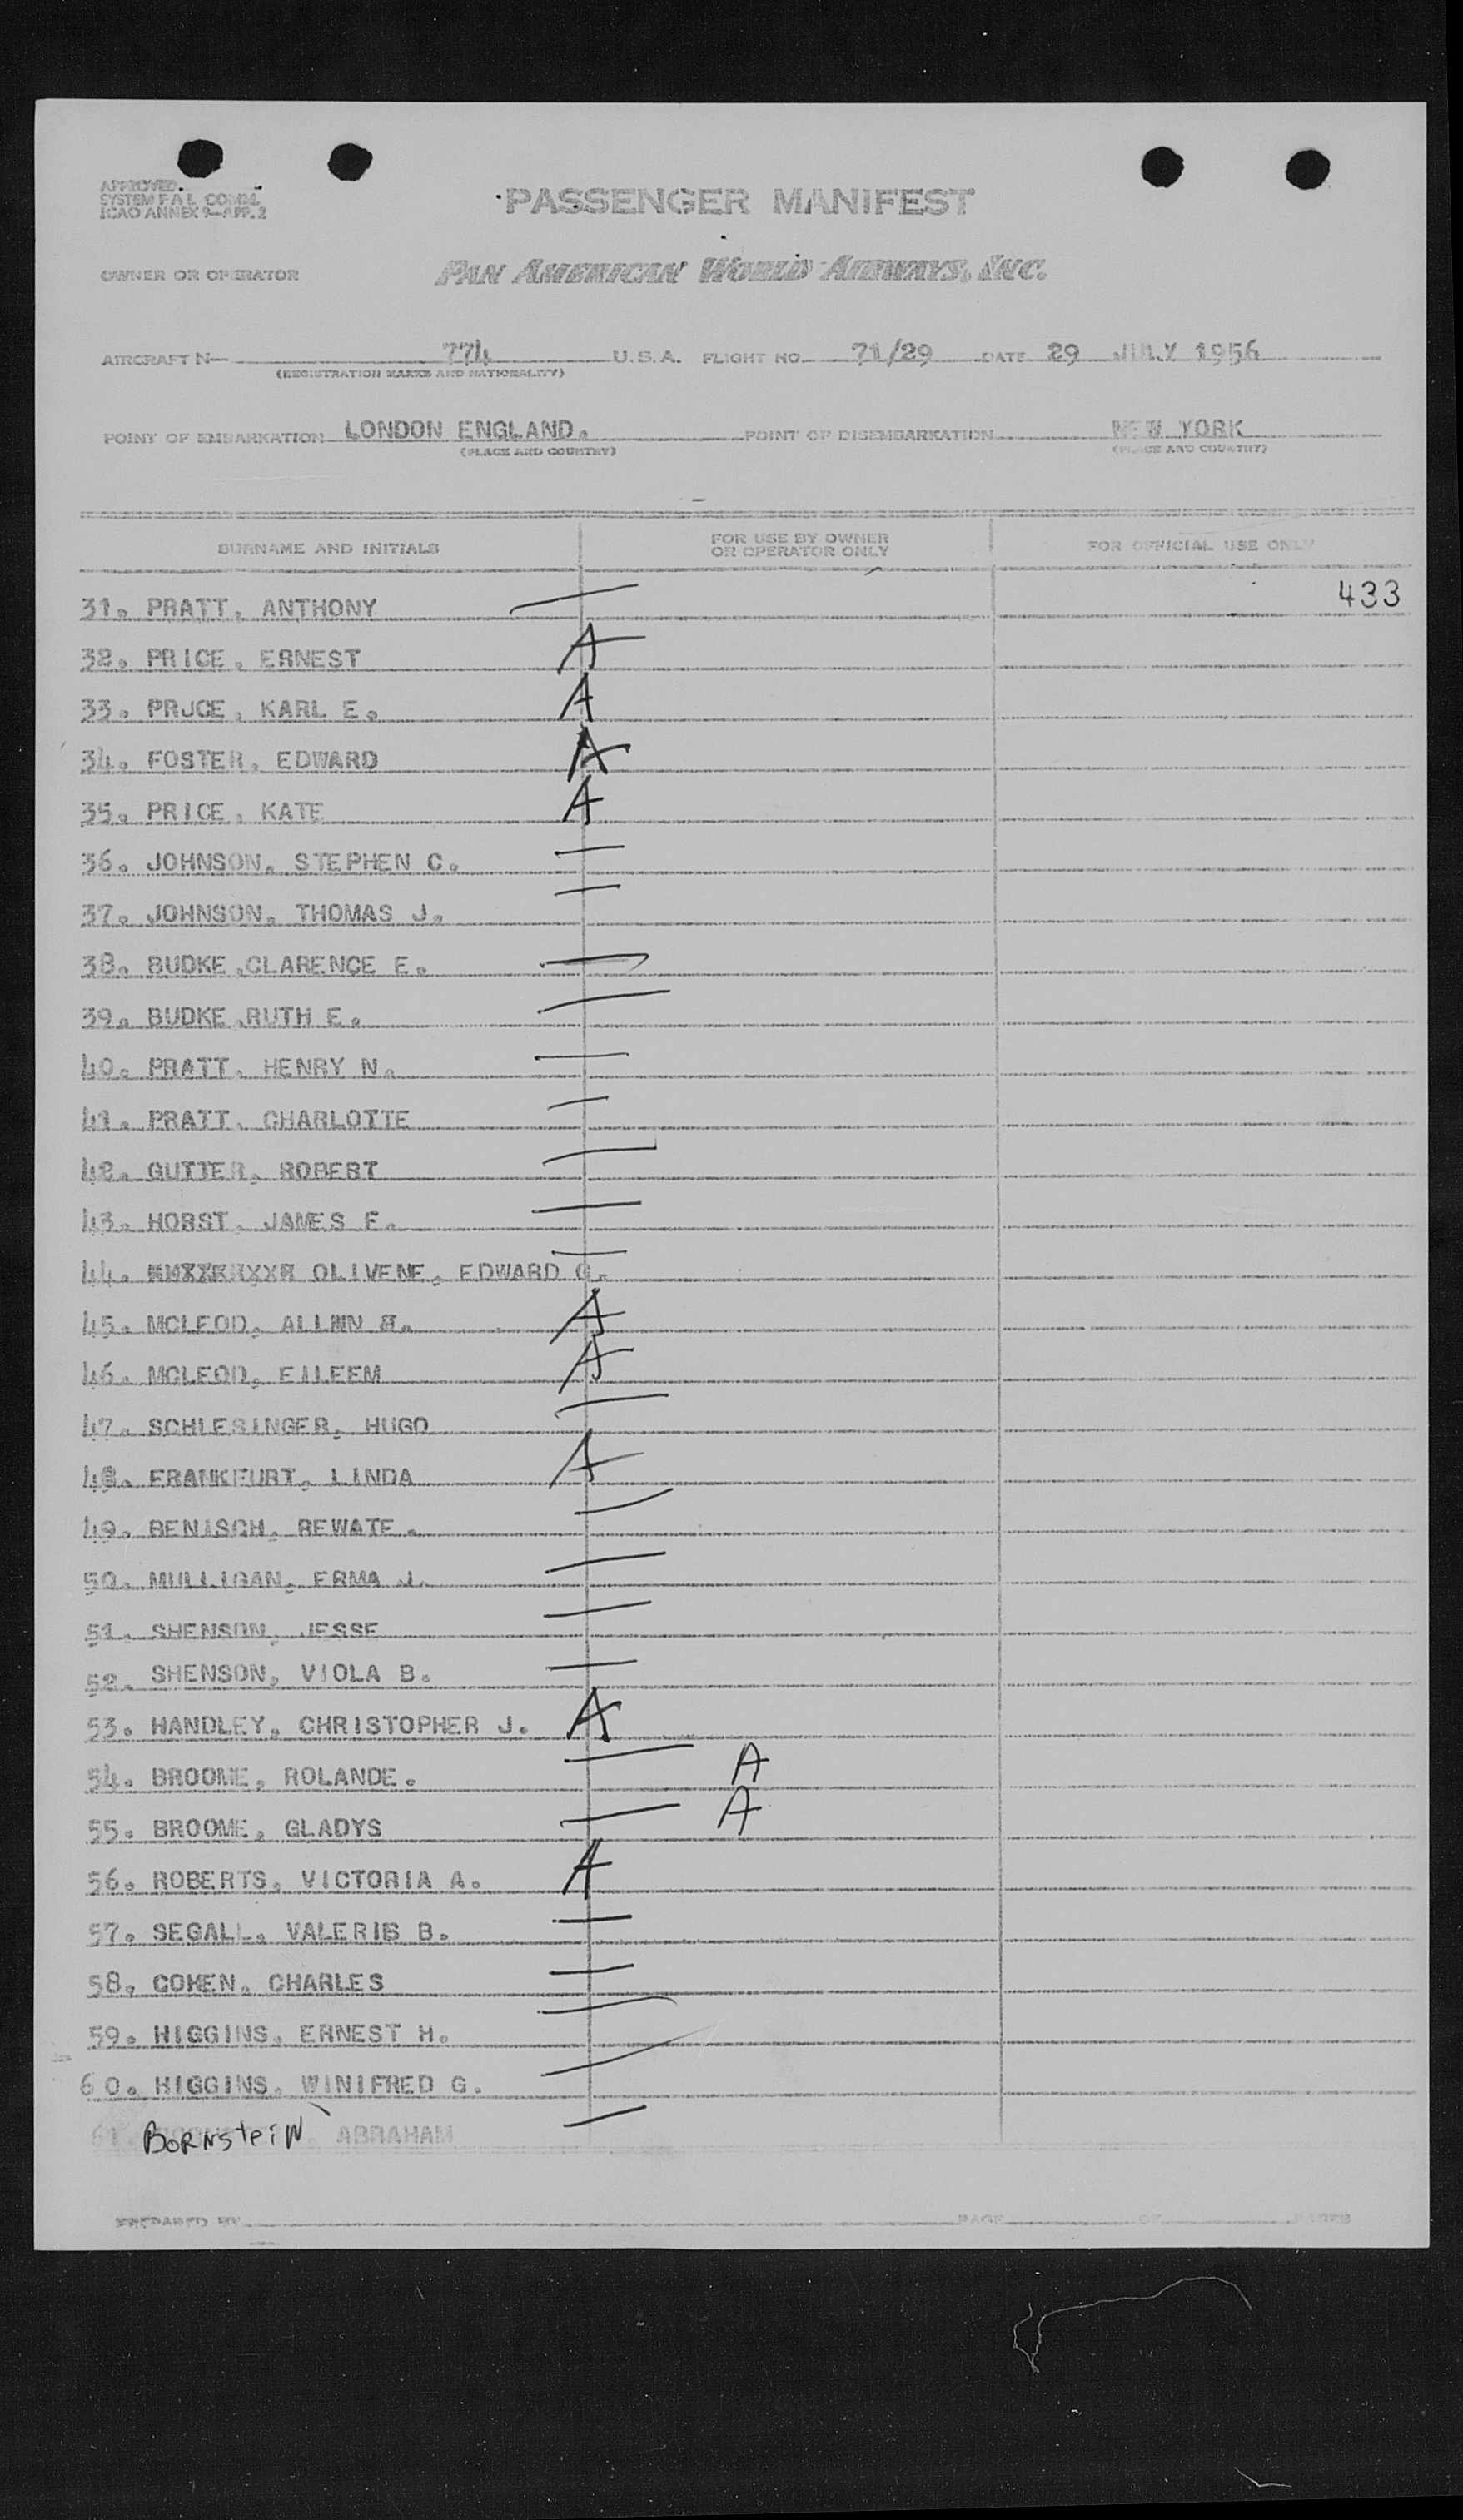 APPROVED
SYSTEM F A L COMM.
ICAO ANNEX 9-APP. 2
PASSENGER MANIFEST
OWNER OR OPERATOR PAN AMERICAN WORLD AIRWAYS, INC.
AIRCRAFT N- 774 U.S.A. FLIGHT NO. 71/29 DATE 29 JULY 1956
(REGISTRATION MARKS AND NATIONALITY)
POINT OF EMBARKATION LONDON ENGLAND. POINT OF DISEMBARKATION NEW YORK
(PLACE AND COUNTRY) (PLACE AND COUNTRY)
SURNAME AND INITIALS FOR USE BY OWNER OR OPERATOR ONLY FOR OFFICIAL USE ONLY
31. PRATT, ANTHONY — 433
32. PRICE, ERNEST A
33. PRJCE, KARL E. A
34. FOSTER, EDWARD A
35. PRICE, KATE A
36. JOHNSON, STEPHEN C. —
37. JOHNSON, THOMAS J. —
38. BUDKE ,CLARENCE E. —
39. BUDKE ,RUTH E. —
40. PRATT, HENRY N. —
41. PRATT, CHARLOTTE —
42. GUTTER, ROBERT —
43. HORST, JAMES E. —
44. OLIVENE, EDWARD G. —
45. MCLEOD, A
46. MCLEOD, EILEEM A
47. SCHLESINGER, HUGO —
48. FRANKFURT, LINDA A
49. BENISCH, REWATE. —
50. MULLIGAN, ERMA J. —
51. SHENSON, JESSE —
52. SHENSON, VIOLA B. —
53. HANDLEY, CHRISTOPHER J. A
54. BROOME, ROLANDE. — A
55. BROOME, GLADYS — A
56. ROBERTS, VICTORIA A. A
57. SEGALL, B. —
58. COHEN, CHARLES —
59. HIGGINS, ERNEST H. —
60. HIGGINS, WINIFRED G. —
61. BORNsteiN, ABRAHAM —
PREPARED BY PAGE OF PAGES